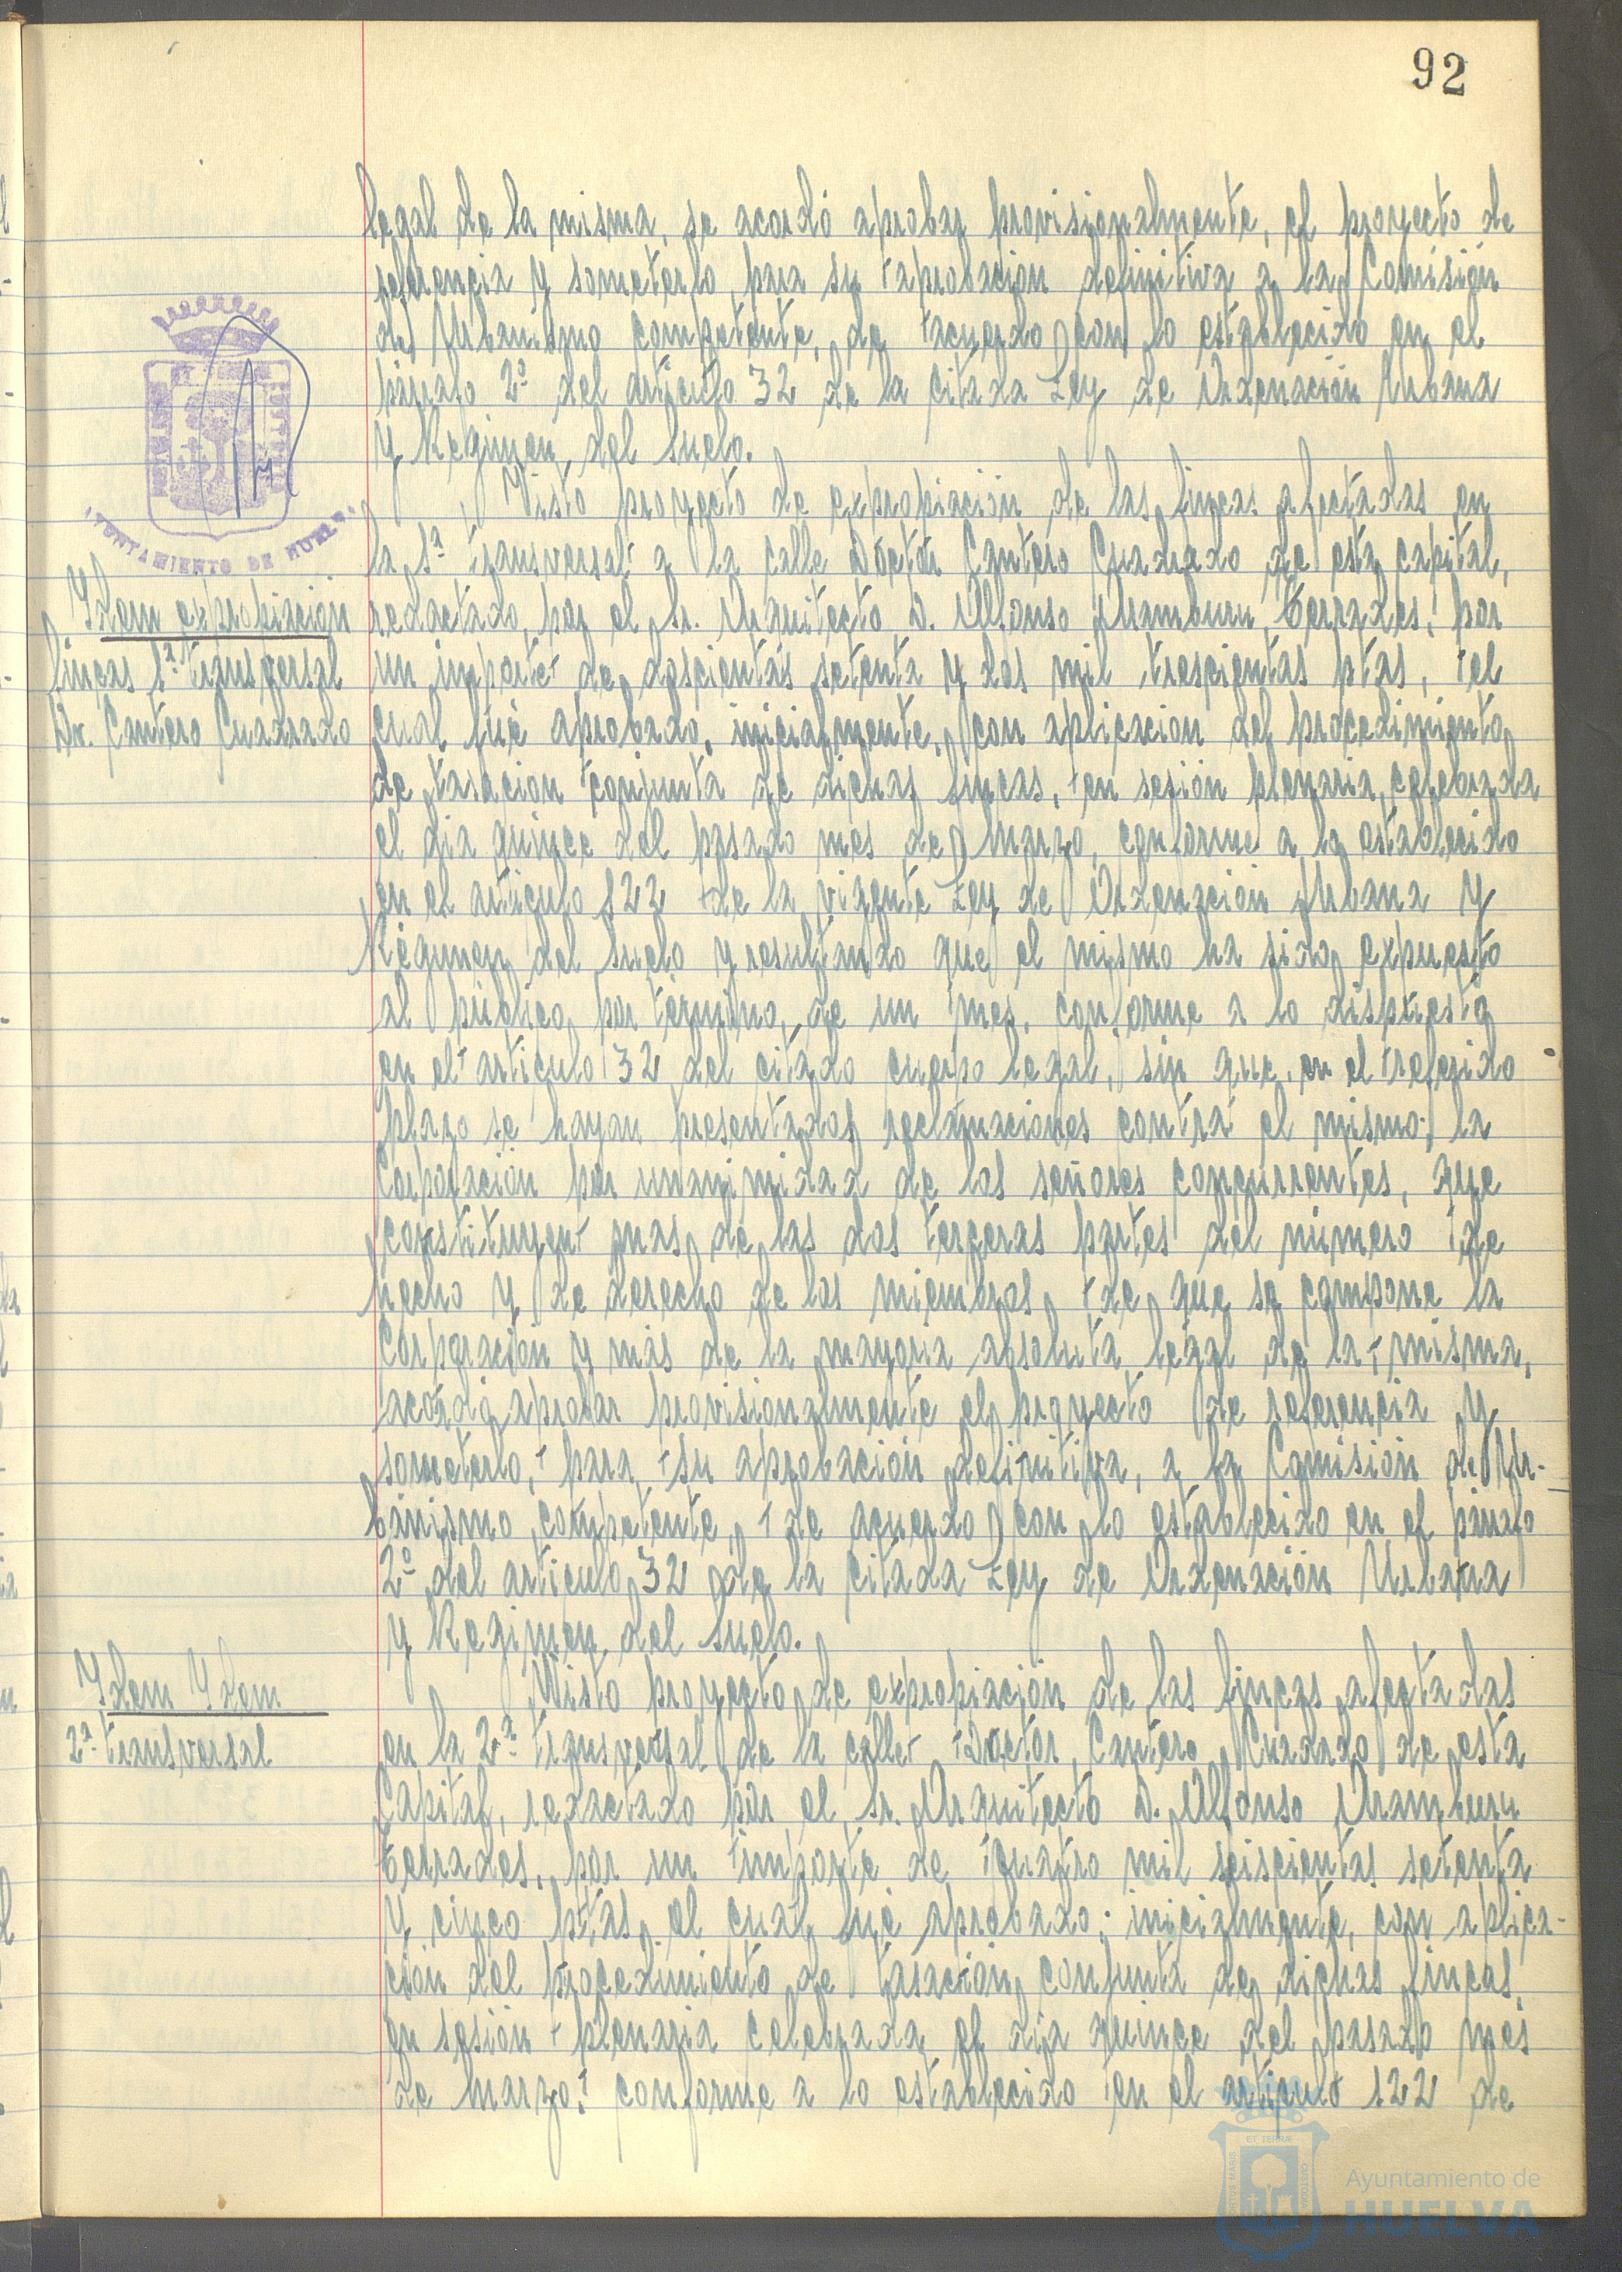 92
legal de la misma, se acordó aprobar provisionalmente, el proyecto de
referencia y someterlo, para su aprobación definitiva a la Comisión
de Urbanismo competente, de acuerdo con lo establecido en el
párrafo 2º del artículo 32 de la citada Ley de Ordenación Urbana
y Régimen del Suelo.
AYUNTAMIENTO DE HUELVA
Idem expropiación
fincas 1ª transversal
Dr. Cantero Cuadrado
Visto proyecto de expropiación de las fincas afectadas en
la 1ª transversal a la calle Doctor Cantero Cuadrado de esta capital,
redactado, por el Sr. Arquitecto D. Alfonso Aramburu Terrades, por
un importe de doscientas setenta y dos mil trescientas ptas, el
cual fué aprobado, inicialmente, con aplicacion del procedimiento
de tasacion conjunta de dichas fincas, en sesión plenaria, celebrada
el dia quince del pasado mes de Marzo, conforme a lo establecido
en el artículo 122 de la vigente Ley de Ordenación Urbana y
Régimen del Suelo y resultando que el mismo ha sido expuesto
al público por término, de un mes, conforme a lo dispuesto
en el articulo 32 del citado cuerpo legal, sin que, en el referido
plazo se hayan presentados reclamaciones contra el mismo; la
Corporación por unanimidad de los señores concurrentes, que
constituyen mas de las dos terceras partes del número de
hecho y de derecho de los miembros de que se compone la
Corporación y más de la mayoria absoluta legal de la misma,
acordó aprobar provisionalmente el proyecto de referencia y
someterlo, para su aprobación definitiva, a la Comisión de Ur-
banismo competente, de acuerdo con lo establecido en el párrafo
2º del artículo 32 de la citada Ley de Ordenación Urbana
y Regimen del Suelo.
Idem Idem
2ª transversal
Visto proyecto de expropiación de las fincas afectadas
en la 2ª transversal de la calle Doctor Cantero Cuadrado de esta
Capital, redactado por el Sr. Arquitecto D. Alfonso Aramburu
Terrades, por un importe de cuatro mil seiscientas setenta
y cinco ptas, el cual fué aprobado, inicialmente, con aplica-
ción del procedimiento de tasación conjunta de dichas fincas,
en sesión plenaria celebrada el dia quince del pasado mes
de Marzo, conforme a lo establecido en el artículo 122 de
Ayuntamiento de
HUELVA